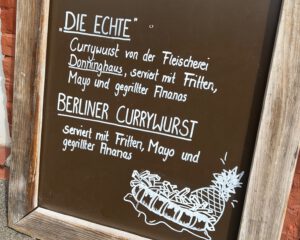 „DIE ECHTE"
Currywurst von der Fleischerei
Dönninghaus, serviert mit Fritten,
Mayo und gegrillter Ananas
BERLINER CURRYWURST
serviert mit Fritten, Mayo und
gegrillter Ananas